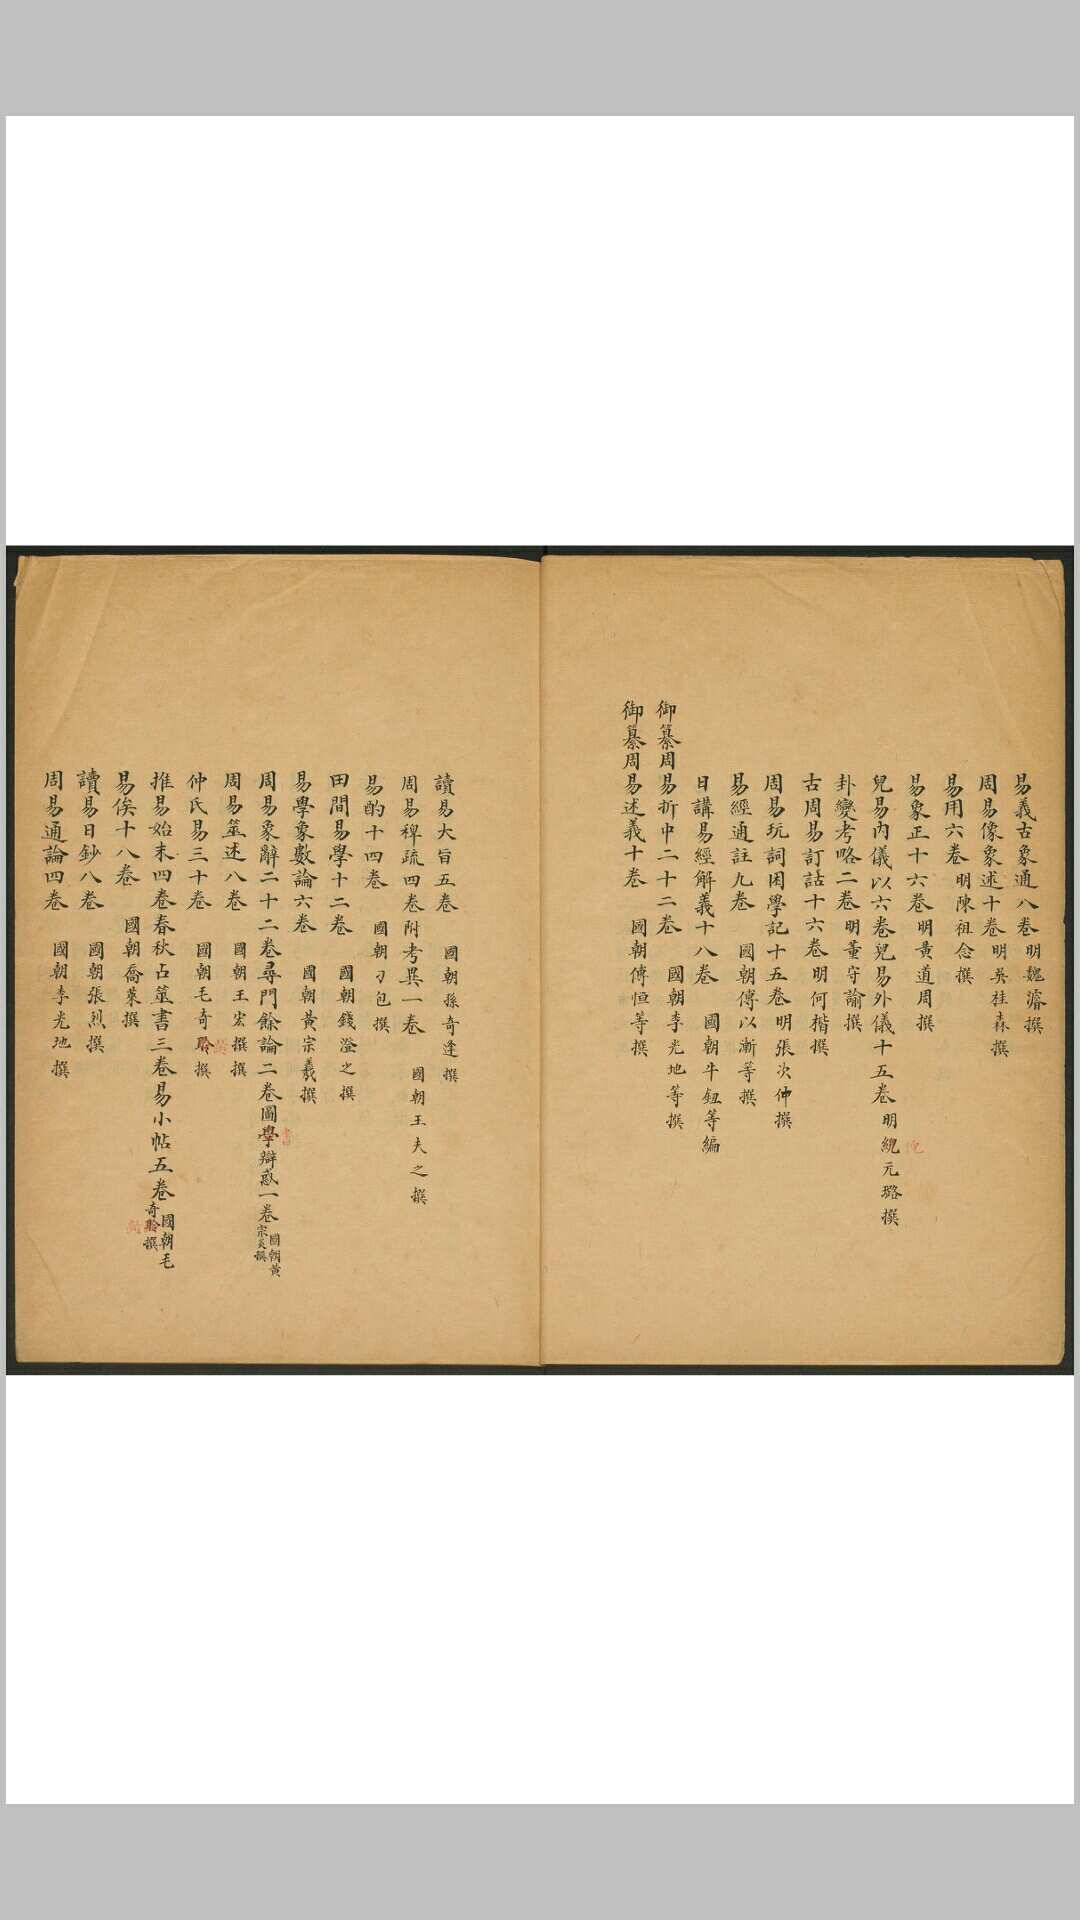 易義古象通八卷明魏濬撰
周易像象述十卷明吳桂森撰
易用六卷明陳祖念撰
易象正十六卷明黃道周撰
兒易內儀以六卷兒易外儀十五卷明 元璐撰
卦變考略二卷明董守諭撰
古周易訂詁十六卷明何楷撰
周易玩詞困學記十五卷明張次仲撰
易經通註九卷 國朝傅以漸等撰
日講易經解義十八卷 國朝牛鈕等編
御纂周易折中二十二卷 國朝李光地等撰
御纂周易述義十卷 國朝傅恒等撰
讀易大旨五卷 國朝孫奇逢撰
周易稗疏四卷附考異一卷 國朝王夫之撰
易酌十四卷 國朝刁包撰
田間易學十二卷 國朝錢澄之撰
易學象數論六卷 國朝黃宗羲撰
周易象辭二十二卷尋門餘論二卷圖學辯惑一卷國朝黃宗炎撰
周易筮述八卷 國朝王宏撰撰
仲氏易三十卷 國朝毛奇聆撰
推易始末四卷春秋占筮書三卷易小帖五卷國朝毛奇聆撰
易俟十八卷 國朝喬萊撰
讀易日鈔八卷 國朝張烈撰
周易通論四卷 國朝李光地撰